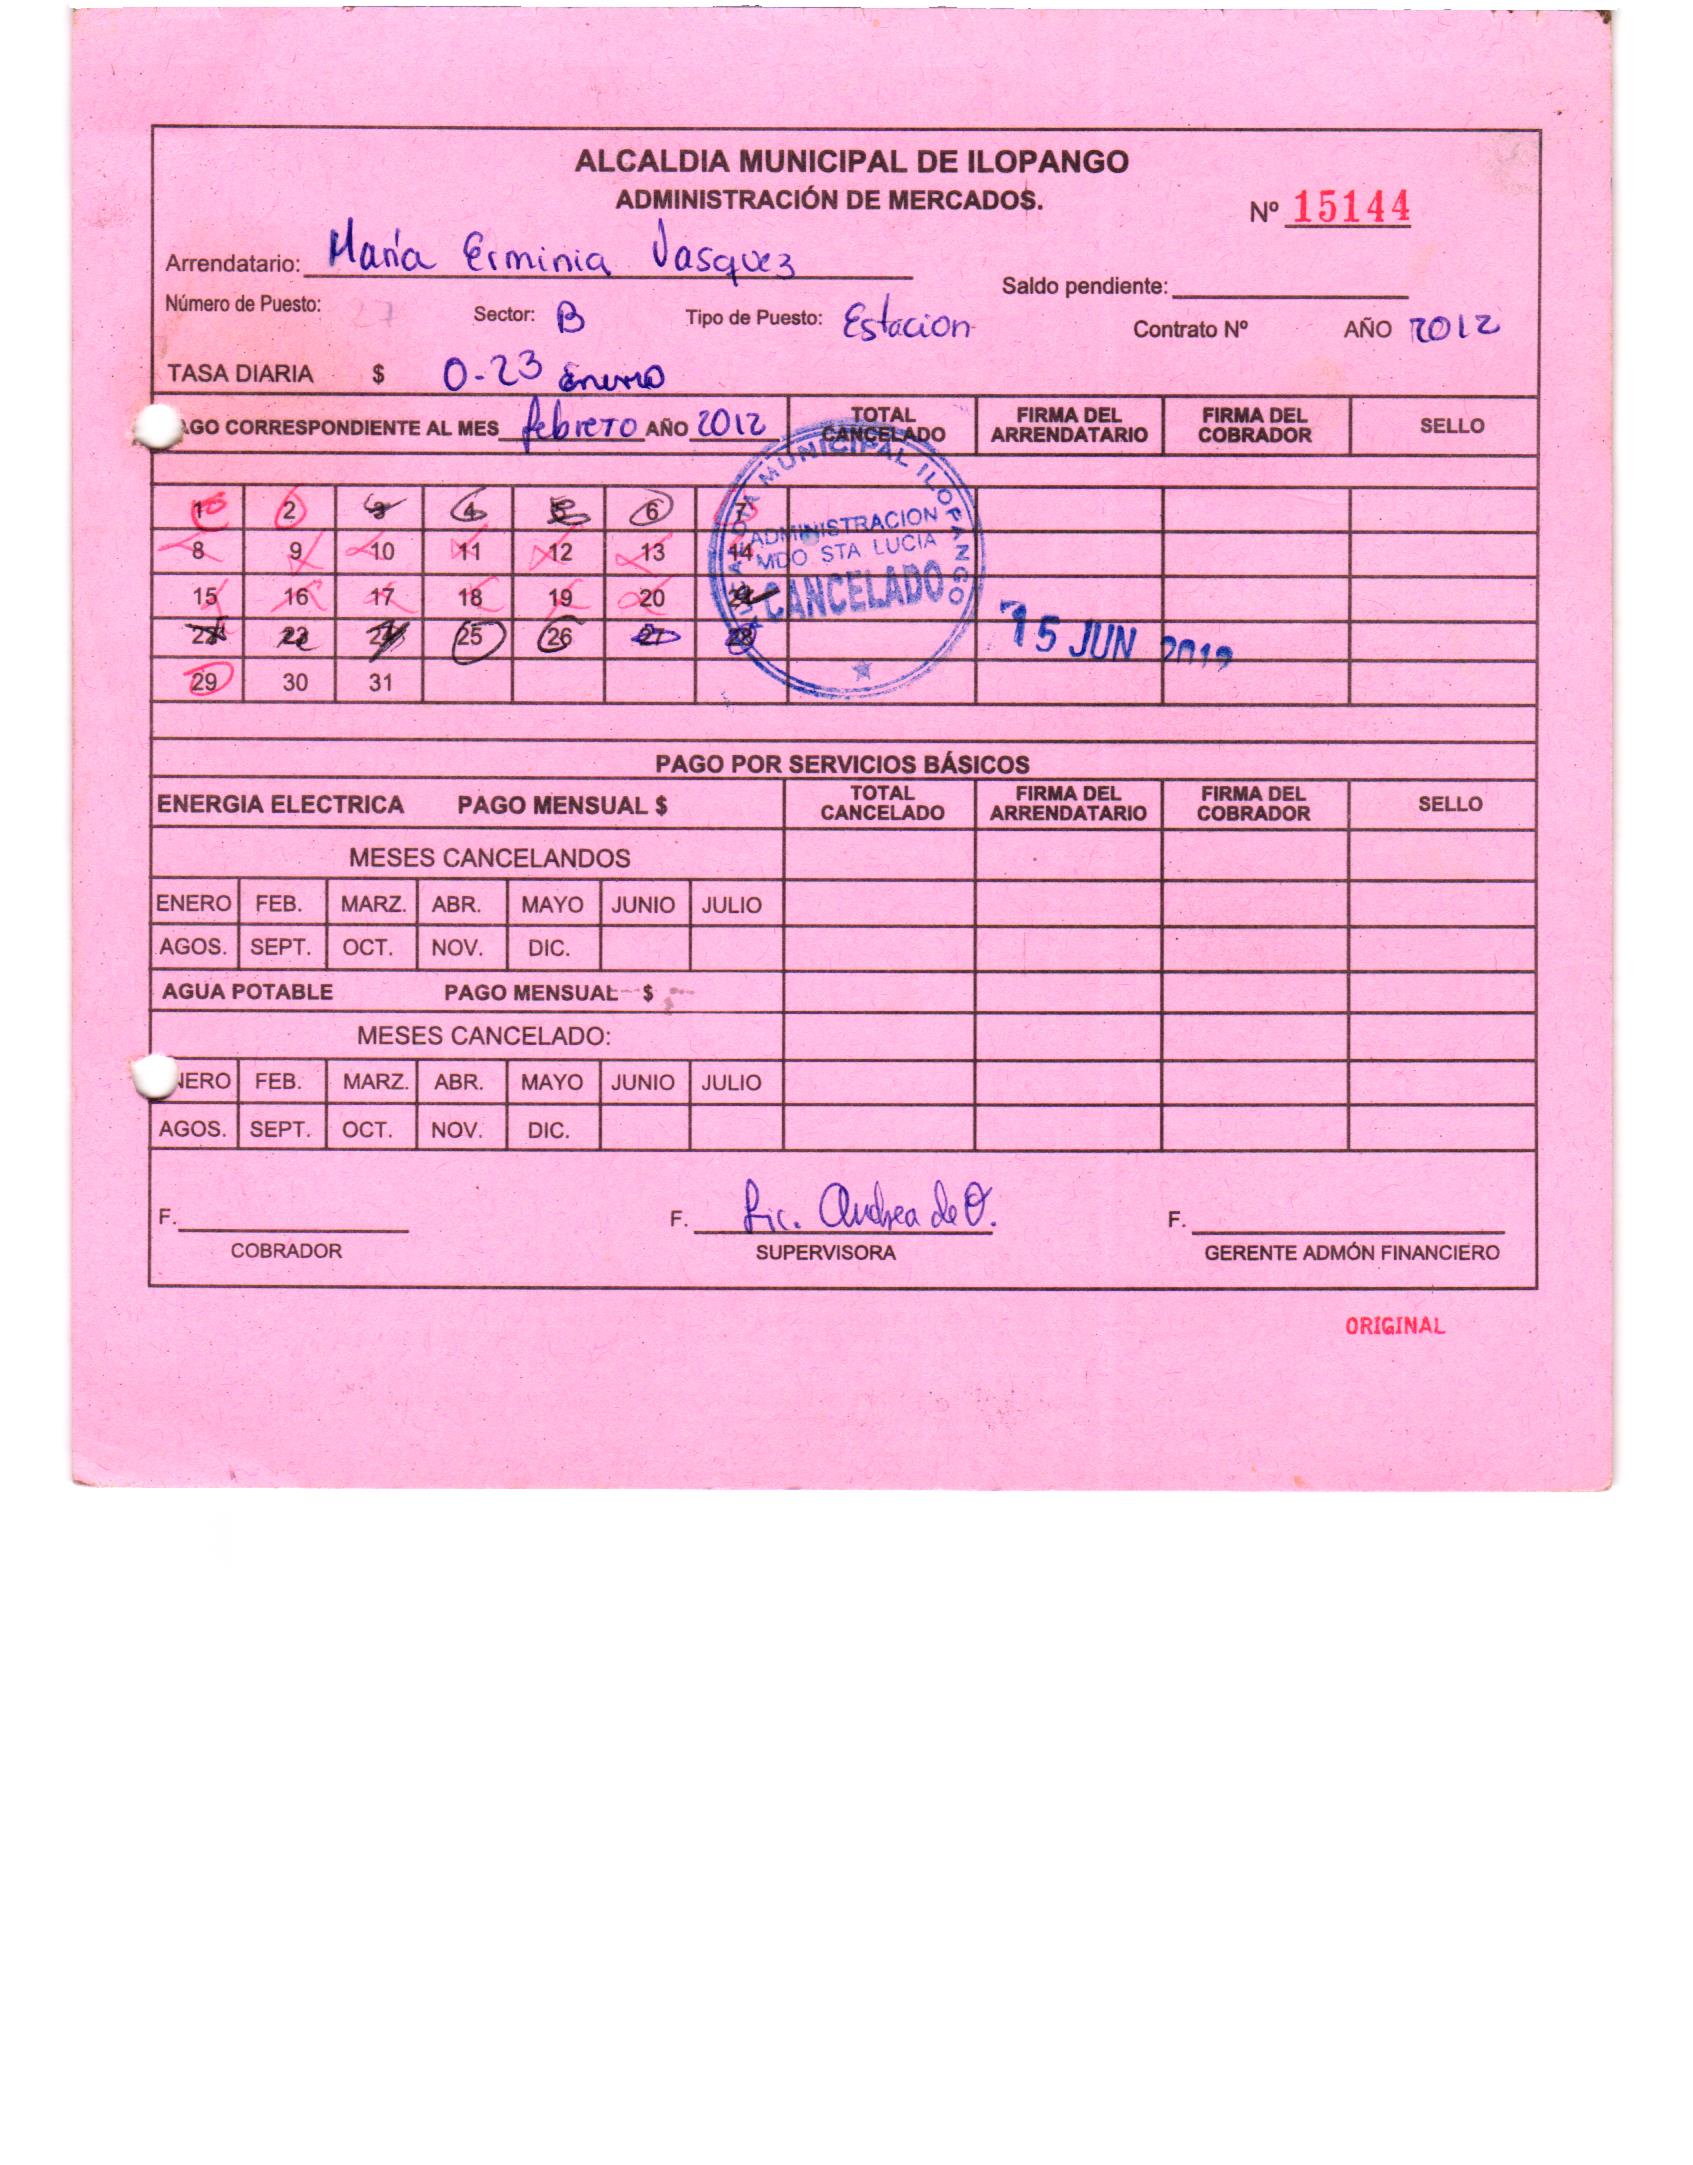 ALCALDIA MUNICIPAL DE ILOPANGO
ADMINISTRACIÓN DE MERCADOS.
Nº 15144
Arrendatario: María Erminia Vasquez
Saldo pendiente:
Número de Puesto: 27 Sector: B Tipo de Puesto: Estacion Contrato Nº AÑO 2012
TASA DIARIA $ 0-23 Enero
AGO CORRESPONDIENTE AL MES febrero AÑO 2012 TOTAL CANCELADO FIRMA DEL ARRENDATARIO FIRMA DEL COBRADOR SELLO
1 2 3 4 5 6 7
8 9 10 11 12 13 14
15 16 17 18 19 20 21
22 23 24 25 26 27 28
29 30 31
MUNICIPAL ILOPANGO
ADMINISTRACION
MDO STA LUCIA
CANCELADO
15 JUN 2012
PAGO POR SERVICIOS BÁSICOS
ENERGIA ELECTRICA PAGO MENSUAL $ TOTAL CANCELADO FIRMA DEL ARRENDATARIO FIRMA DEL COBRADOR SELLO
MESES CANCELANDOS
ENERO FEB. MARZ. ABR. MAYO JUNIO JULIO
AGOS. SEPT. OCT. NOV. DIC.
AGUA POTABLE PAGO MENSUAL $
MESES CANCELADO:
NERO FEB. MARZ. ABR. MAYO JUNIO JULIO
AGOS. SEPT. OCT. NOV. DIC.
F. F. Lic. Andrea de O. F.
COBRADOR SUPERVISORA GERENTE ADMÓN FINANCIERO
ORIGINAL